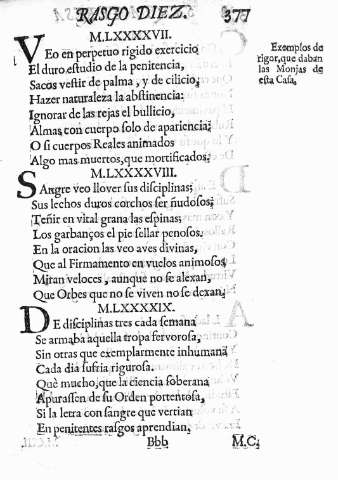 RASGO DIEZ. 377
M.LXXXXVII.
VEo en perpetuo rigido exercicio
El duro estudio de la penitencia,
Sacos vestir de palma, y de cilicio,
Hazer naturaleza la abstinencia:
Ignorar de las rejas el bullicio,
Almas con cuerpo solo de apariencia;
O si cuerpos Reales animados
Algo mas muertos, que mortificados.
Exemplos de
rigor, que daban
las Monjas de
esta Casa.
M.LXXXXVIII.
SAngre veo llover sus disciplinas;
Sus lechos duros corchos ser ñudosos;
Teñir en vital grana las espinas;
Los garbanços el pie sellar penosos.
En la oracion las veo aves divinas,
Que al Firmamento en vuelos animosos
Miran veloces, aunque no se alexan,
Que Orbes que no se viven no se dexan.
M.LXXXXIX.
DE disciplinas tres cada semana
Se armaba aquella tropa fervorosa,
Sin otras que exemplarmente inhumana
Cada dia sufria rigurosa.
Què mucho, que la ciencia soberana
Apurassen de su Orden portentosa,
Si la letra con sangre que vertian
En penitentes rasgos aprendian,
Bbb M.C.